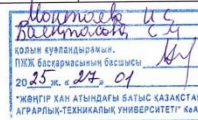 қолын куәландырамын.
ПЖЖ басқармасының басшысы
2025 ж. «27» 01
"ЖӘҢГІР ХАН АТЫНДАҒЫ БАТЫС ҚАЗАҚСТАН
АГРАРЛЫҚ-ТЕХНИКАЛЫҚ УНИВЕРСИТЕТІ" КеАҚ